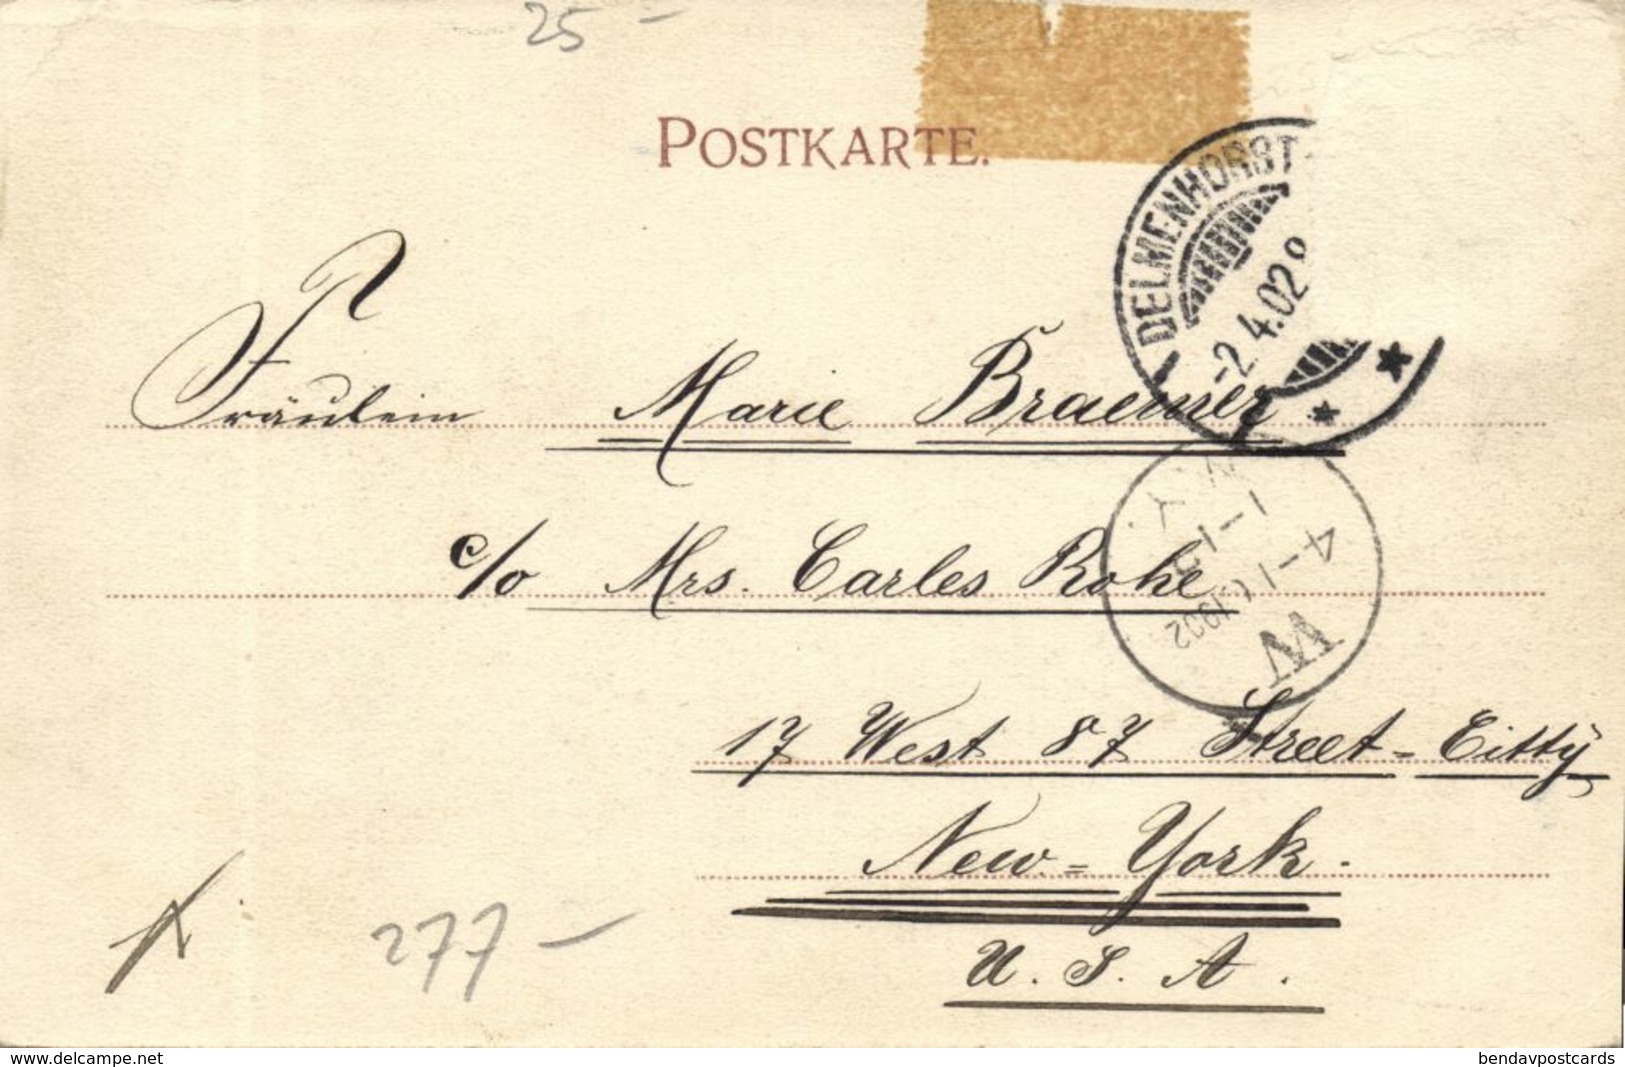 25 -
POSTKARTE.
DELMENHORST
-2.4.02 8
Fräulein Marie Braemer
c/o Mrs. Carles Rohe
N.Y.
4-1
1902
W
17 West 87 Street-Eittÿ
New=York.
U. S. A.
277-
www.delcampe.net
bendavpostcards